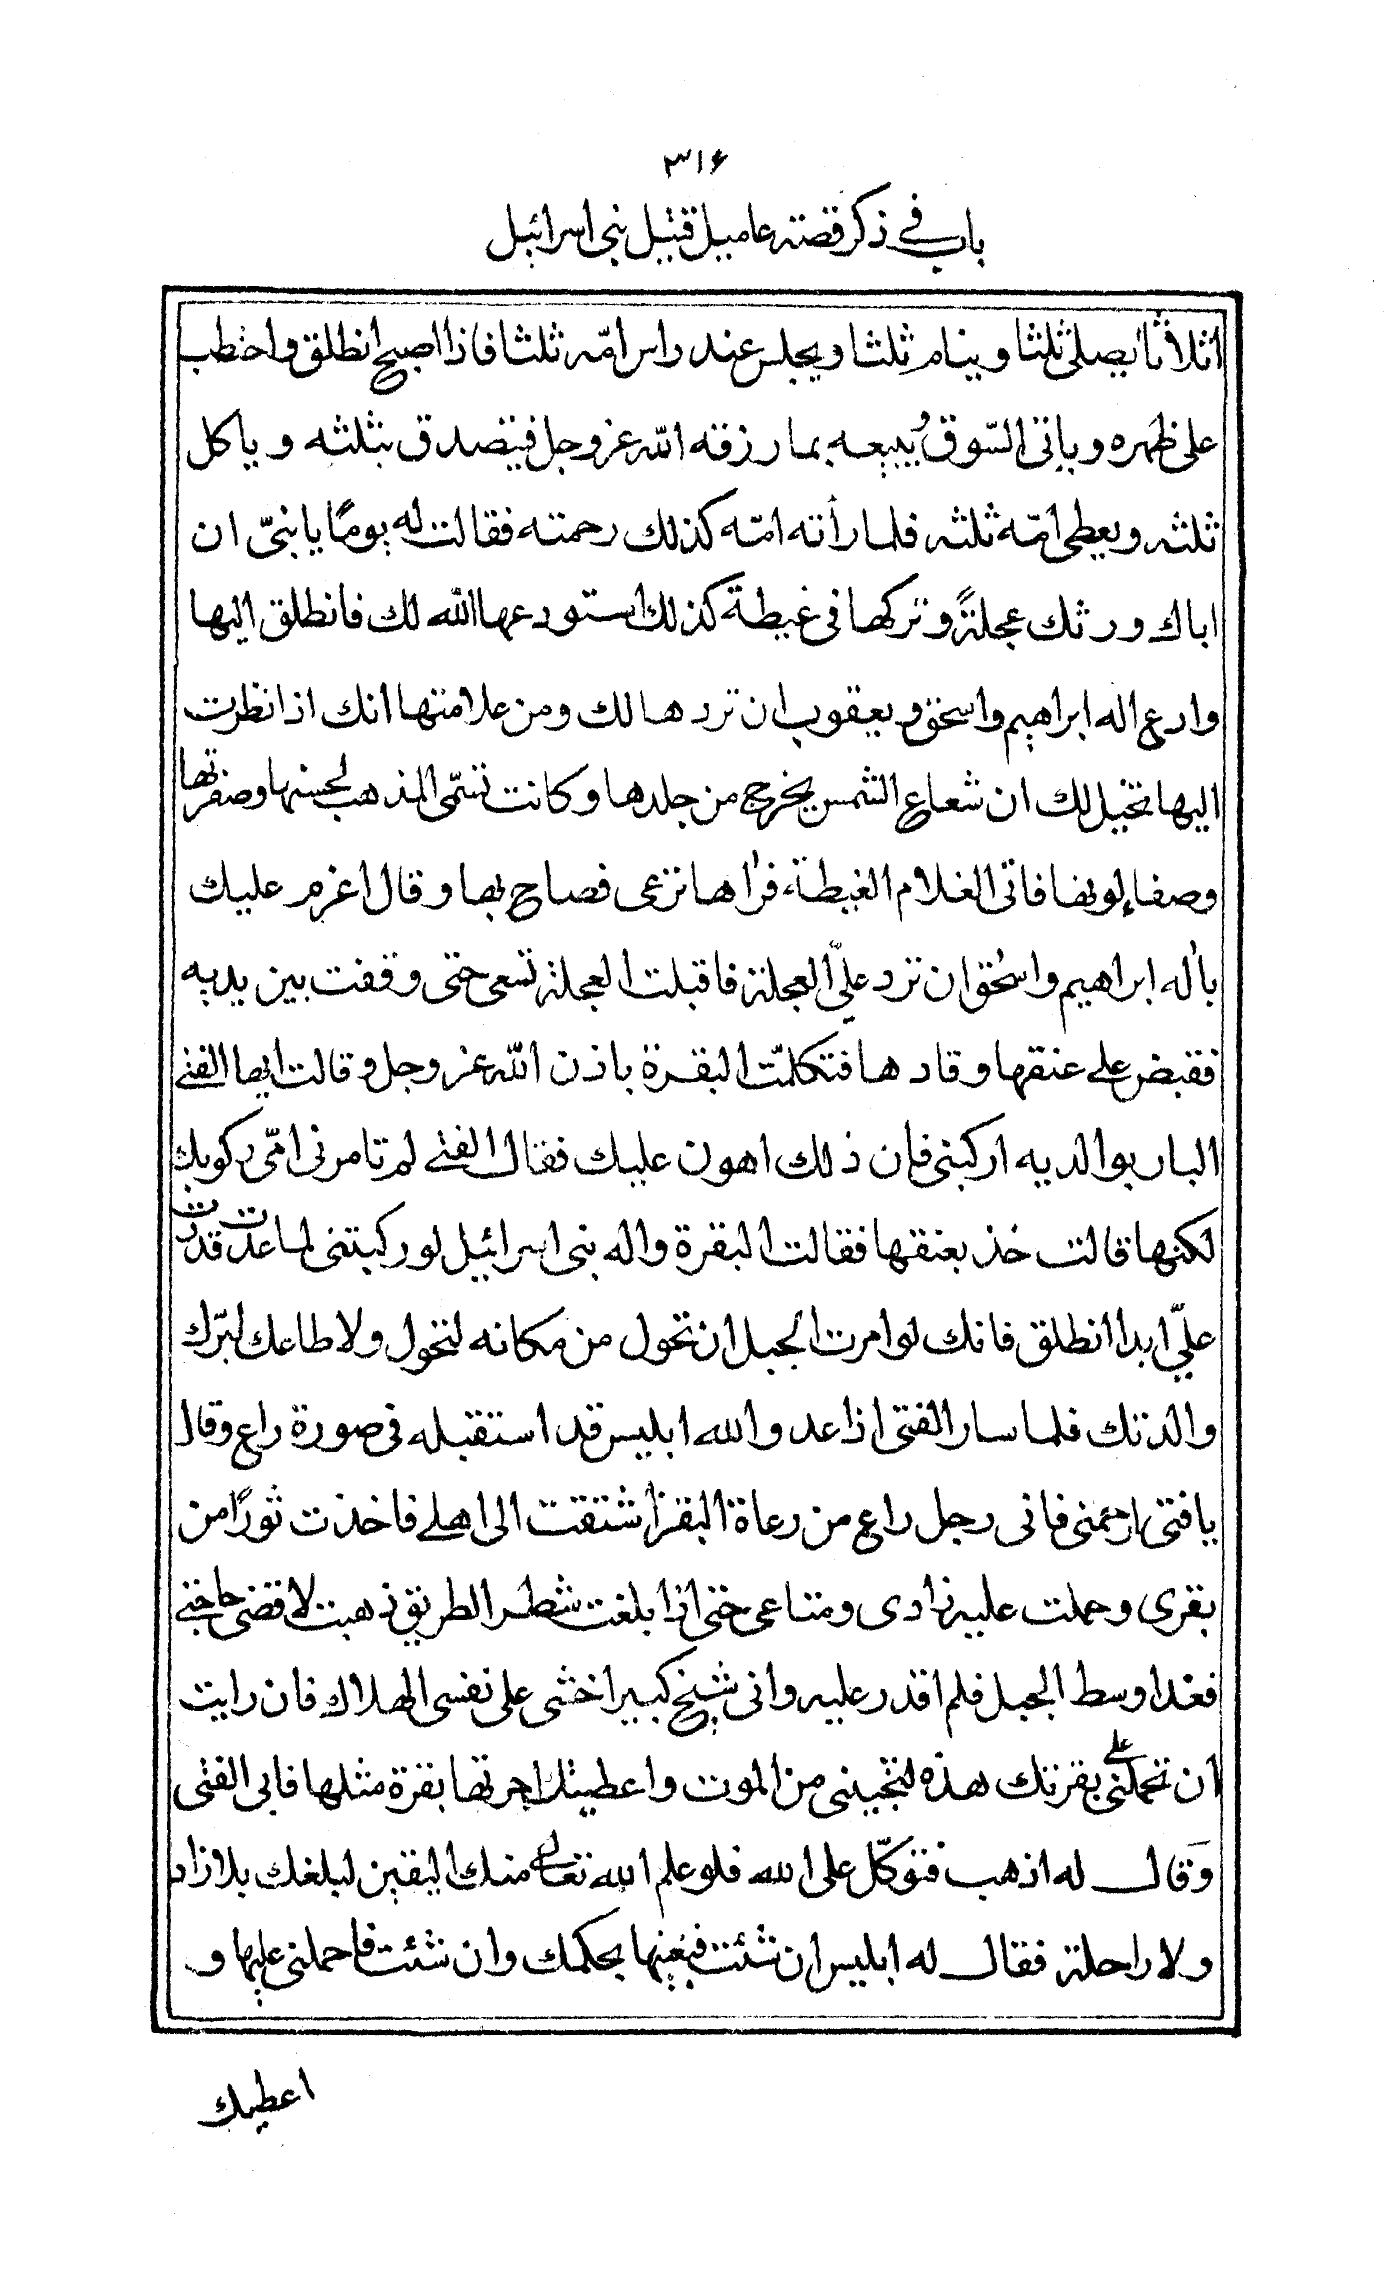 ۳۱۶
باب في ذكر قصته عاميل قتيل بني اسرائيل
اثلاثا يصلى ثلثا وينام ثلثا ويجلس عند راس امّه ثلثا فاذا اصبح انطلق واحتطب
على ظهره وياتى السّوق يبيعه بما رزقه الله عز وجل فيتصدق بثلثه وياكل
ثلثه ويعطى امّه ثلثه فلما رأته امّه كذلك رحمته فقالت له يومًا يا بنىّ ان
اباك ورثك عجلةً وتركها فى غيطة كذلك استودعها الله لك فانطلق اليها
وادع اله ابراهيم واسحق ويعقوب ان تردها لك ومن علامتها انك اذا نظرت
اليها تخيل لك ان شعاع الشمس يخرج من جلدها وكانت تسمّى المذهب لحسنها وصفرتها
وصفاء لونها فاتى الغلام الغيطة فرأها ترعى فصاح بها وقال اعزم عليك
باله ابراهيم واسحق ان ترد علىّ العجلة فاقبلت العجلة تسعى حتى وقفت بين يديه
فقبض على عنقها وقادها فتكلمّت البقرة باذن الله عز وجل وقالت ايها الفتى
البار بوالديه اركبنى فان ذلك اهون عليك فقال الفتى لم تامرنى امّى ركوبك
لكنها قالت خذ بعنقها فقالت البقرة واله بنى اسرائيل لو ركبتنى لما عدت قدرت
علىّ ابدا انطلق فانك لو امرت الجبل ان تحول من مكانه لتحول ولاطاعك لبرّك
والدتك فلما سار الفتى اذا عدو الله ابليس قد استقبله فى صورة راع وقال
يا فتى ارحمنى فانى رجل راع من رعاة البقر اشتقت الى اهلى فاخذت ثورًا من
بقرى وحملت عليه زادى ومتاعى حتى اذا بلغت شطر الطريق ذهبت لاقضى حاجتى
فغدا وسط الجبل فلم اقدر عليه وانى شيخ كبير اخشى على نفسى الهلاك فان رايت
ان تحملنى على بقرتك هذه لتنجينى من الموت واعطيتك اجرتها بقرة مثلها فابى الفتى
وَقال له اذهب فتوكّل على الله فلو علم الله تعالى منك اليقين لبلغك بلا زاد
ولا راحلة فقال له ابليس ان شئت فبعنيها بحكمك وان شئت فاحملنى عليها و
اعطيك